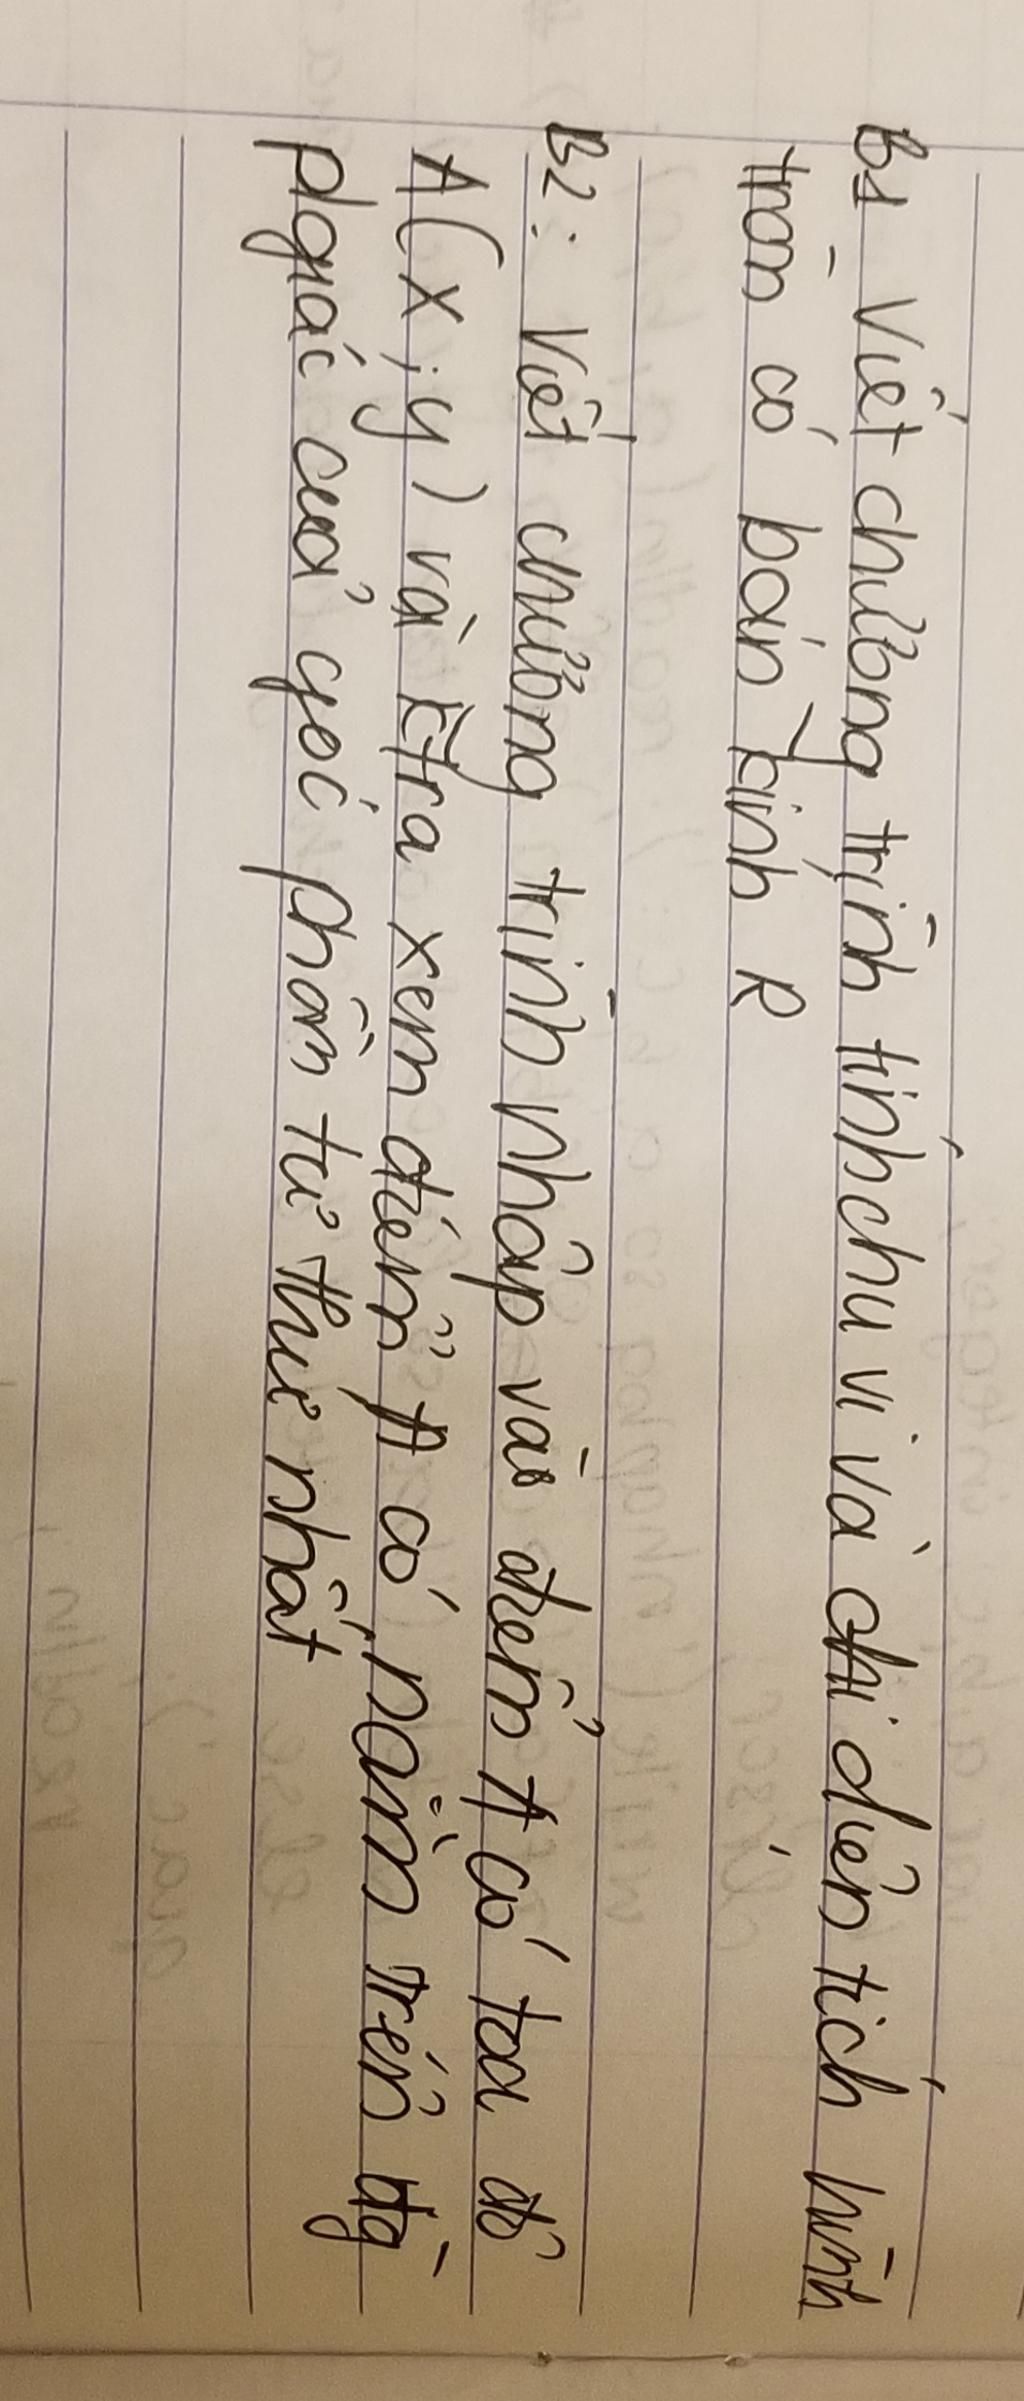 B1 Viết chương trình tính chu vi và diện tích hình
tròn có bán kính R
B2: Viết chương trình nhập vào điểm A có toạ độ
A(x;y) và ktra xem điểm A có nằm trên đg
pgiác của góc phần tư thứ nhất